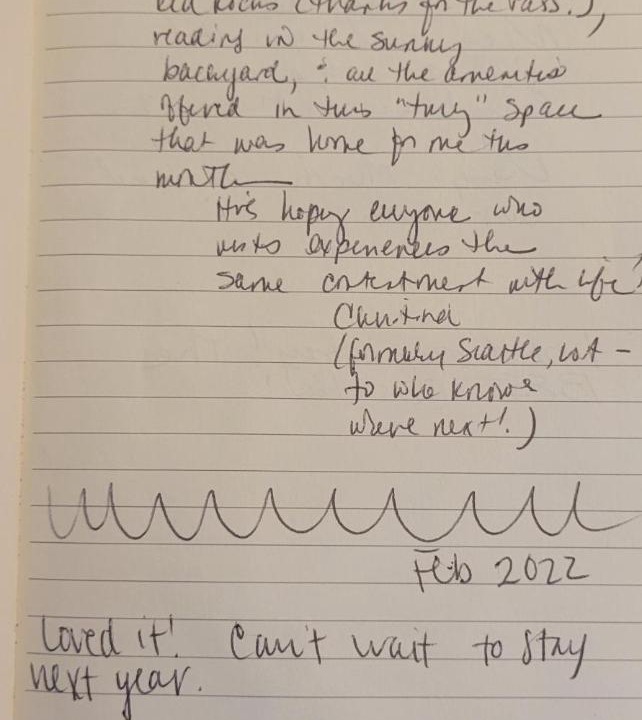 Red Rocks (thanks for the pass!),
reading in the sunny
backyard, & all the amenities
offered in this "tiny" space
that was home for me this
month
Here's hoping everyone who
visits experiences the
same contentment with life!
(formerly Seattle, WA -
to who knows
where next!)
Feb 2022
Loved it! Can't wait to stay
next year.